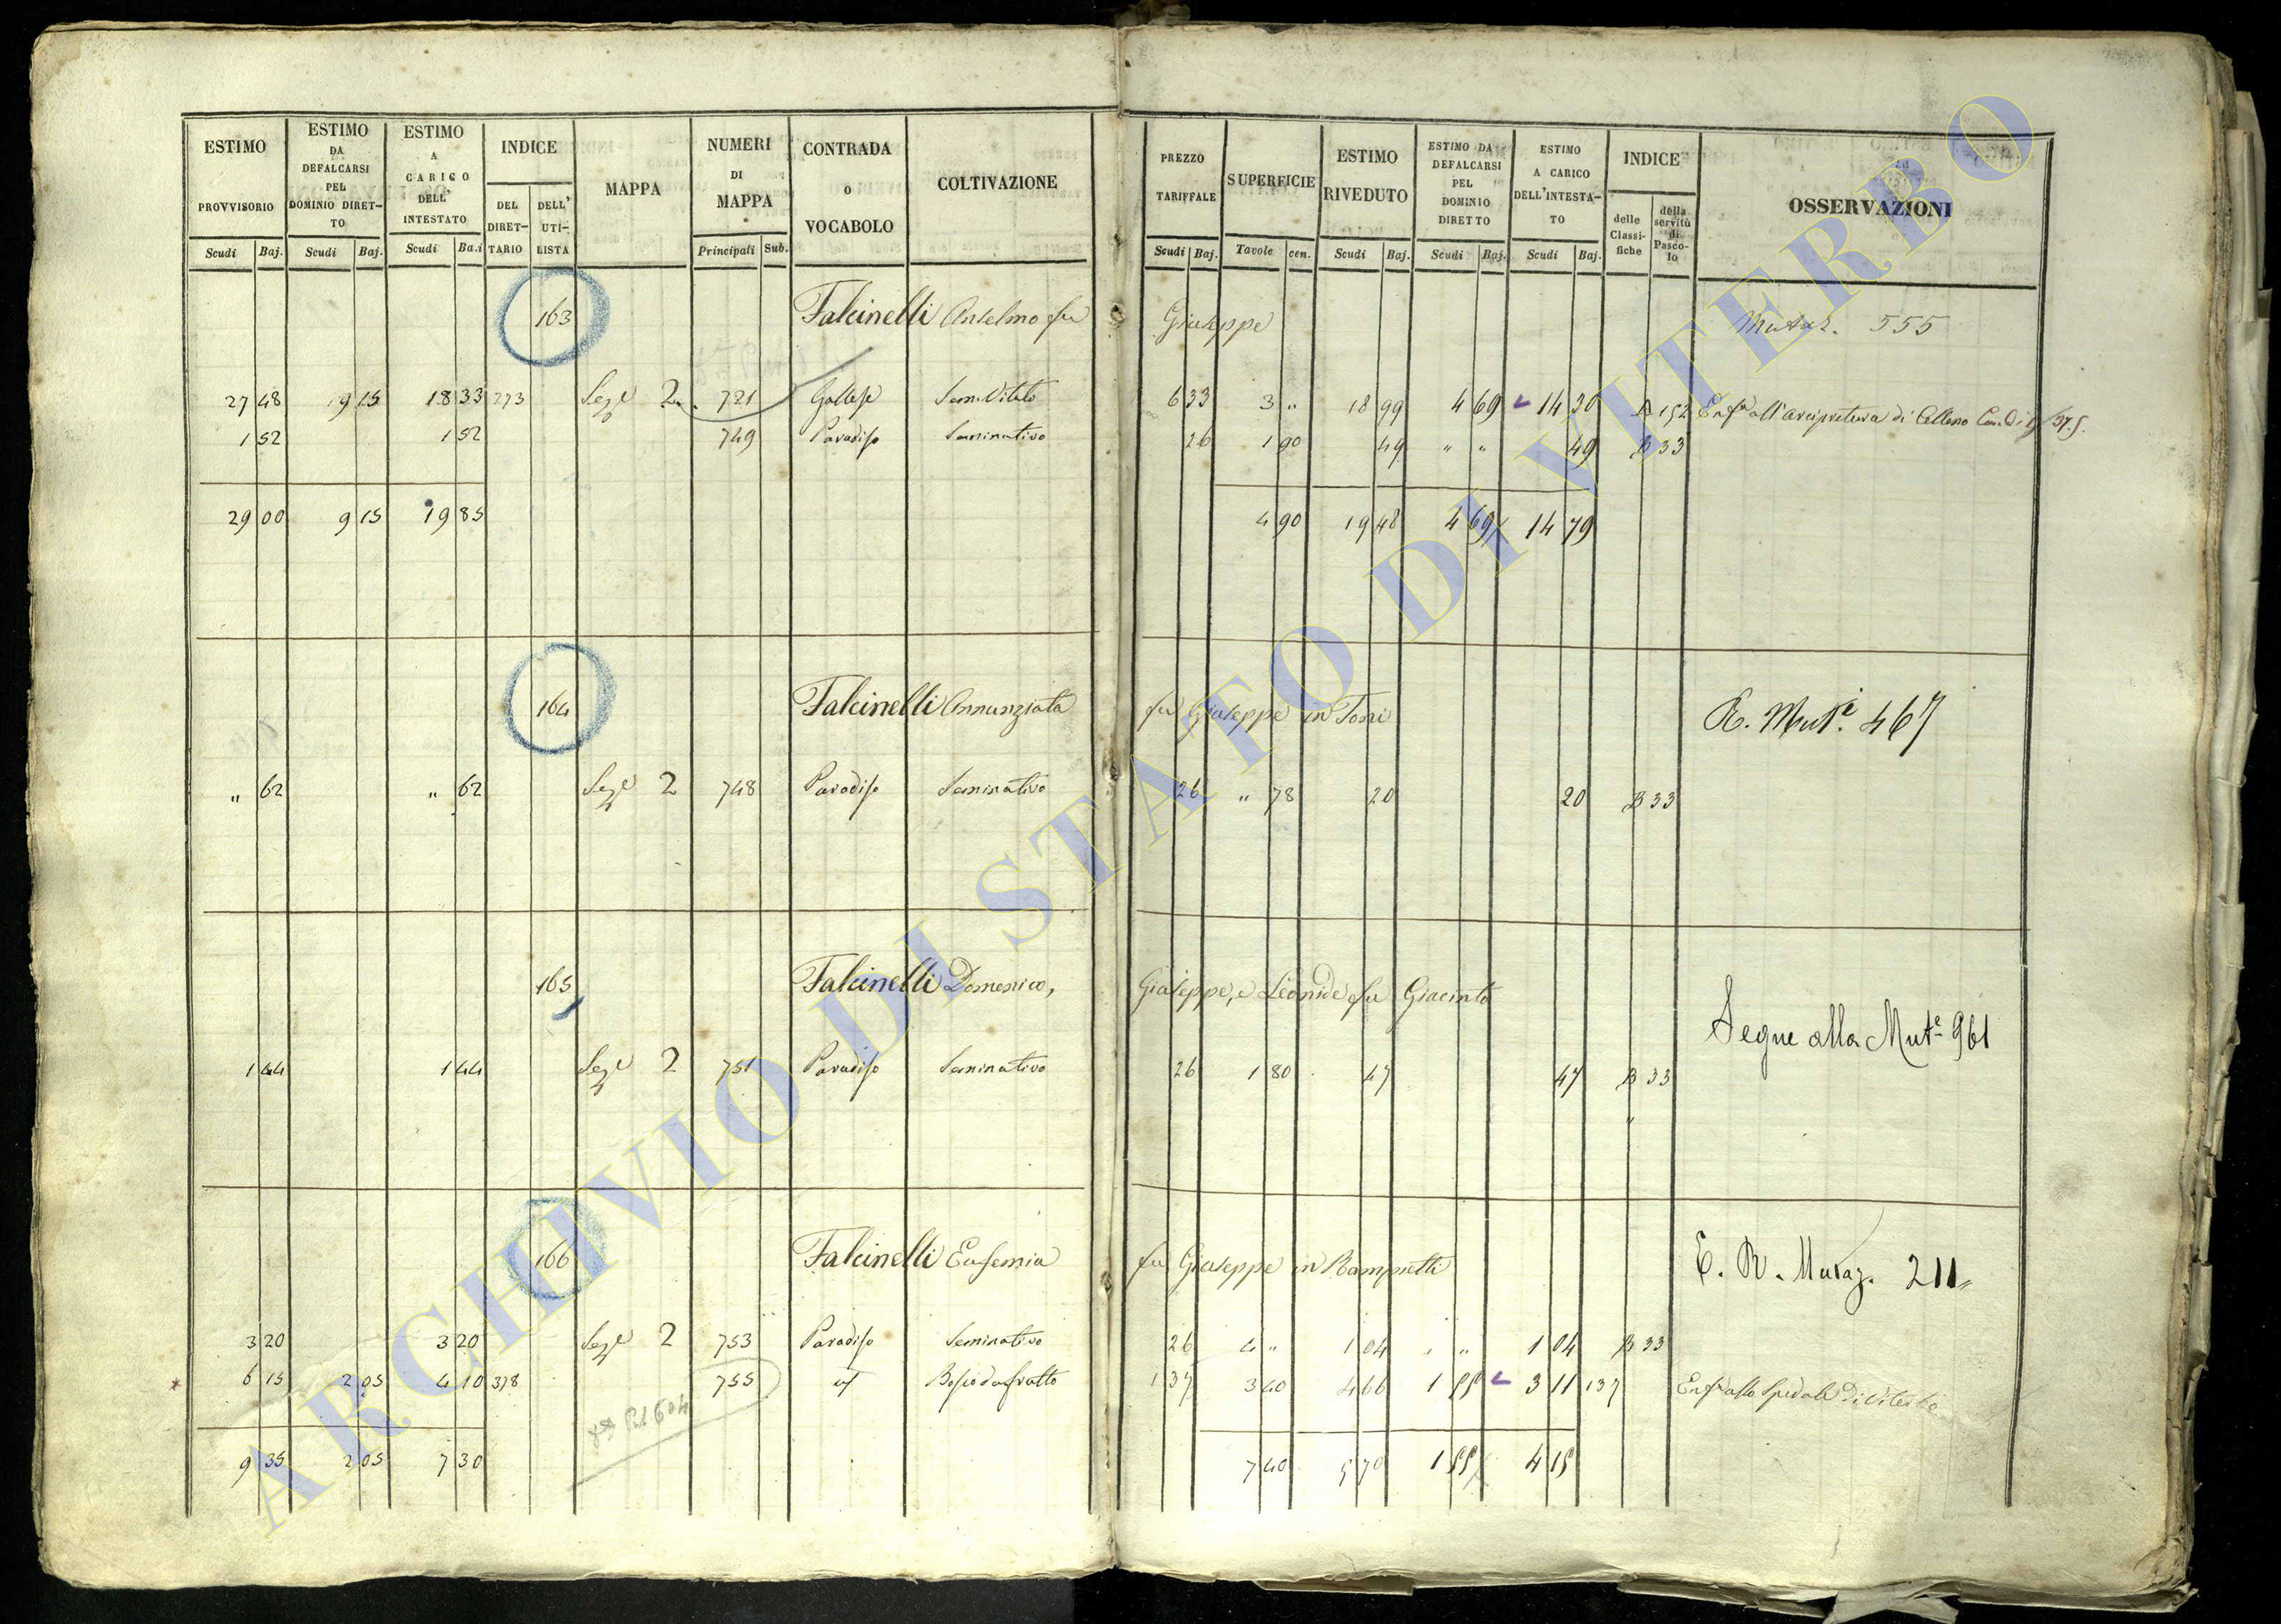 ESTIMO PROVVISORIO Scudi Baj.
ESTIMO DA DEFALCARSI PEL DOMINIO DIRET-TO Scudi Baj.
ESTIMO A CARICO DELL' INTESTATO Scudi Ba.i
INDICE DEL DIRET-TARIO DELL' UTI-LISTA
MAPPA
NUMERI DI MAPPA Principali Sub.
CONTRADA O VOCABOLO
COLTIVAZIONE
PREZZO TARIFFALE Scudi Baj.
SUPERFICIE Tavole cen.
ESTIMO RIVEDUTO Scudi Baj.
ESTIMO DA DEFALCARSI PEL DOMINIO DIRETTO Scudi Baj.
ESTIMO A CARICO DELL'INTESTA-TO Scudi Baj.
INDICE delle Classi-fiche della servitù di Pasco-lo
OSSERVAZIONI
163 Falcinelli Anselmo fu Giuseppe Mutaz. 555
27 48 9 15 18 33 273 Sez.e 2 721 Gallese Sem. Vitato 6 33 3 „ 18 99 4 69 14 30 B 152 Enf.a all'Arcipretura di Celleno
1 52 1 52 749 Paradiso Seminativo 26 1 90 49 „ „ 49 B 33
29 00 9 15 19 85 4 90 19 48 4 69 14 79
164 Falcinelli Annunziata fu Giuseppe in Toni R. Mut.e 467
„ 62 „ 62 Sez.e 2 748 Paradiso Seminativo 26 „ 78 20 20 B 33
165 Falcinelli Domenico, Giuseppe, e Leonide fu Giacinto
Segue alla Mut.e 961
1 44 1 44 Sez.e 2 751 Paradiso Seminativo 26 1 80 47 47 B 33
166 Falcinelli Eufemia fu Giuseppe in Rampretti E. R. Mutaz. 211
3 20 3 20 Sez.e 2 753 Paradiso Seminativo 26 4 „ 1 04 „ 1 04 B 33
6 15 2 05 4 10 378 755 Bosco da frutto 1 37 3 40 4 66 1 55 3 11 137 Enf.a allo Spedale di Viterbo
9 35 2 05 7 30 7 40 5 70 1 55 4 15
ARCHIVIO DI STATO DI VITERBO